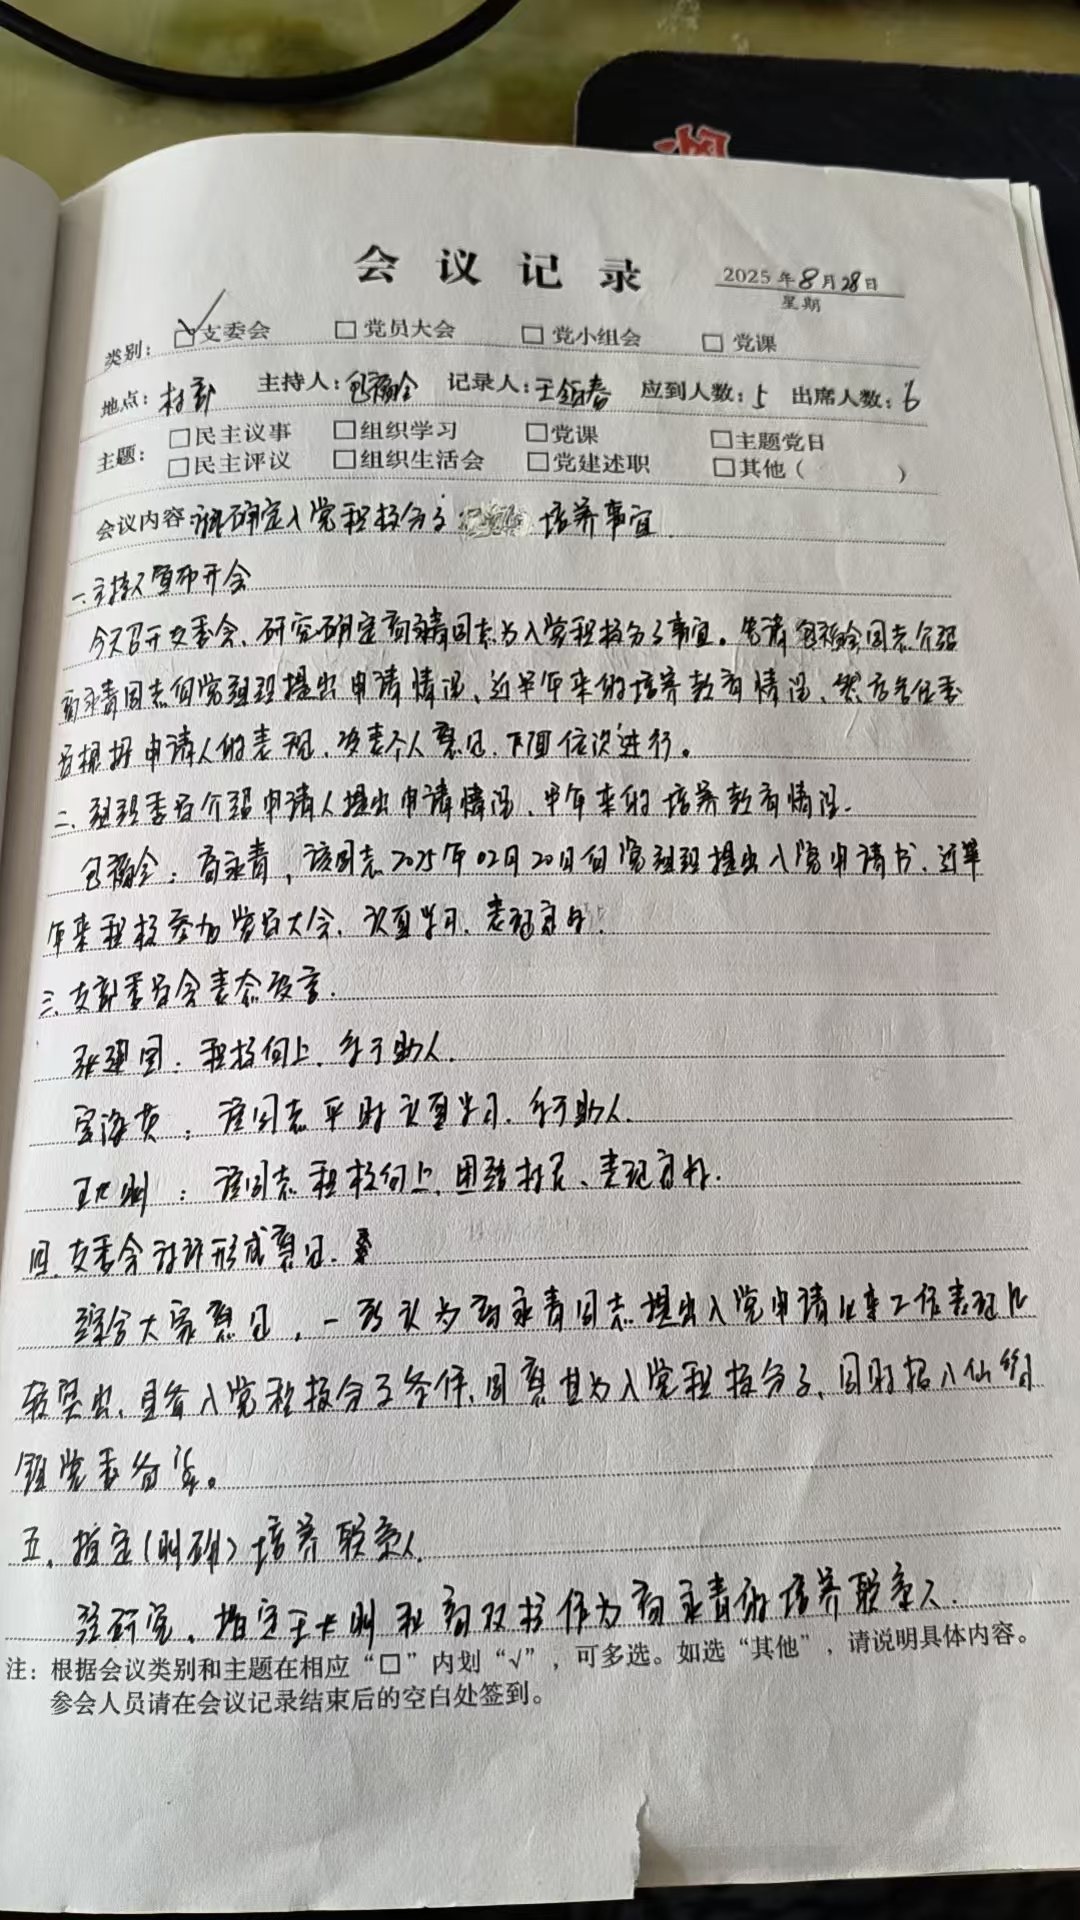 会议记录
2025年8月28日
星期
类别: □支委会 □党员大会 □党小组会 □党课
地点:村部 主持人:包福全 记录人:王钰春 应到人数:5 出席人数:6
主题: □民主议事 □组织学习 □党课 □主题党日
□民主评议 □组织生活会 □党建述职 □其他( )
会议内容: 确定入党积极分子 培养事宜.
一、主持人宣布开会
今天召开支委会、研究确定 永青同志为入党积极分子事宜。先请包福全同志介绍
永青同志向党组织提出申请情况、近半年来的培养教育情况、然后各位委
员根据申请人的表现、发表个人意见.下面依次进行。
二、组织委员介绍申请人提出申请情况、半年来的培养教育情况.
包福全: 永青,该同志2025年02月20日向党组织提出入党申请书、近半
年来积极参加党员大会、认真学习、表现良好.
三、支部委员会表态发言.
张建国:积极向上、乐于助人.
海英:该同志平时认真学习、乐于助人.
王 刚:该同志积极向上、团结村民、表现良好.
四、支委会讨论形成意见.
综合大家意见,一致认为 永青同志提出入党申请以来工作表现比
较突出、具备入党积极分子条件,同意其为入党积极分子、同时报八仙筒
镇党委备案。
五、指定(明确)培养联系人
经研究、指定王 刚和 双 作为 永青的培养联系人.
注:根据会议类别和主题在相应“□”内划“√”,可多选。如选“其他”,请说明具体内容。
参会人员请在会议记录结束后的空白处签到。